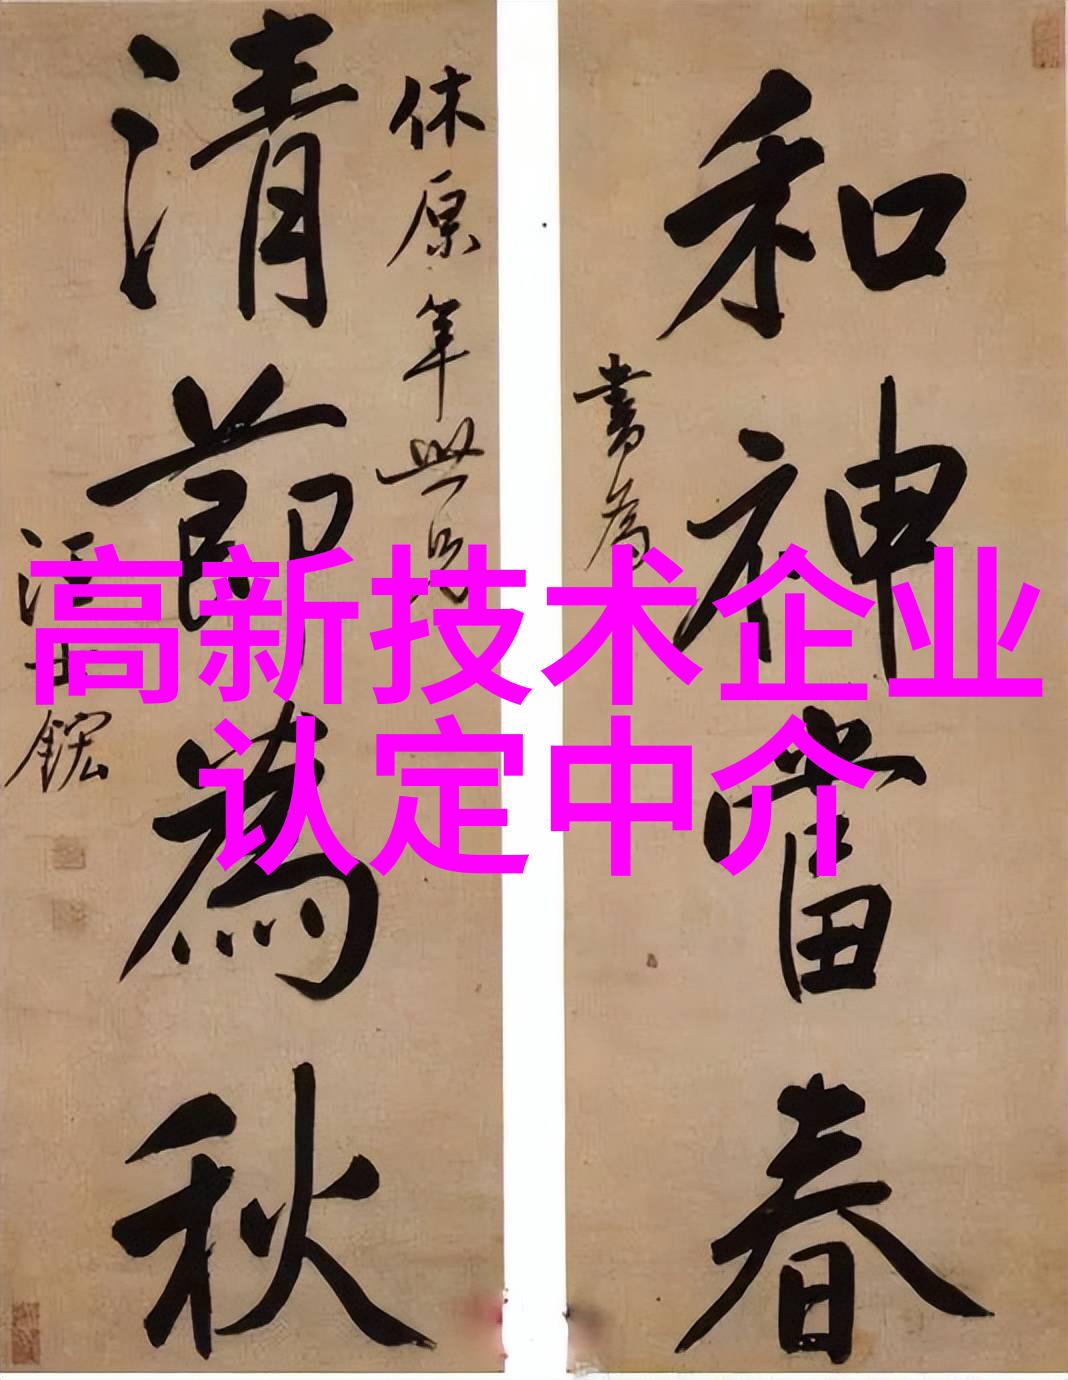 和神当春
書為
休原年世兄
清節為秋
汪由敦
高新技术企业
认定中介